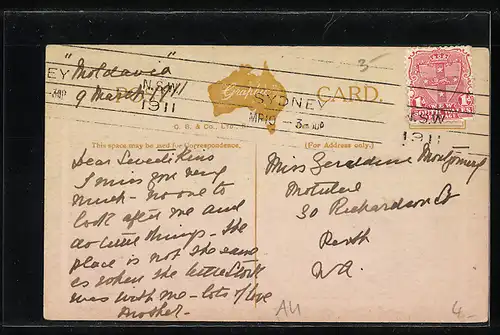 "Moldavia"
9 March 1911
SYDNEY
MR 10 3
N.S.W
1911
Graphic
CARD.
G. B. & Co., Ltd.
This space may be used for Correspondence.
(For Address only.)
Dear
I miss you very
much - no one to
look after me and
do little things - the
place is not the same
as when the little
was with me - lots of love
Mother -
Miss Geraldine Montgomery
30 Richardson St
Perth
W.A.
N.S.W
1911
AU
4.-
3-